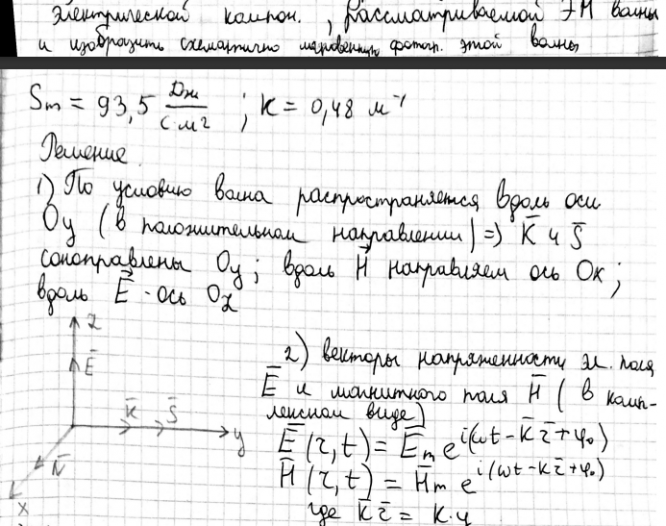 электрической компон., рассматриваемой ЭМ волны
и изобразить схематично мгновенную фотогр. этой волны
Sm = 93,5 Дж/(с·м²) ; k = 0,48 м⁻¹
Решение
1) По условию волна распространяется вдоль оси
Oy (в положительном направлении) => K̄ и S̄
сонаправлены Oy; вдоль H⃗ направляем ось Ox;
вдоль E⃗ - ось Oz
z
Ē
K̄ S̄
y
H̄
x
2) векторы напряженности эл. поля
Ē и магнитного поля H̄ (в комп-
лексном виде)
Ē(r̄,t) = Ēm e^i(ωt - k̄r̄ + φ₀)
H̄(r̄,t) = H̄m e^i(ωt - kr̄ + φ₀)
где k̄r̄ = k·y